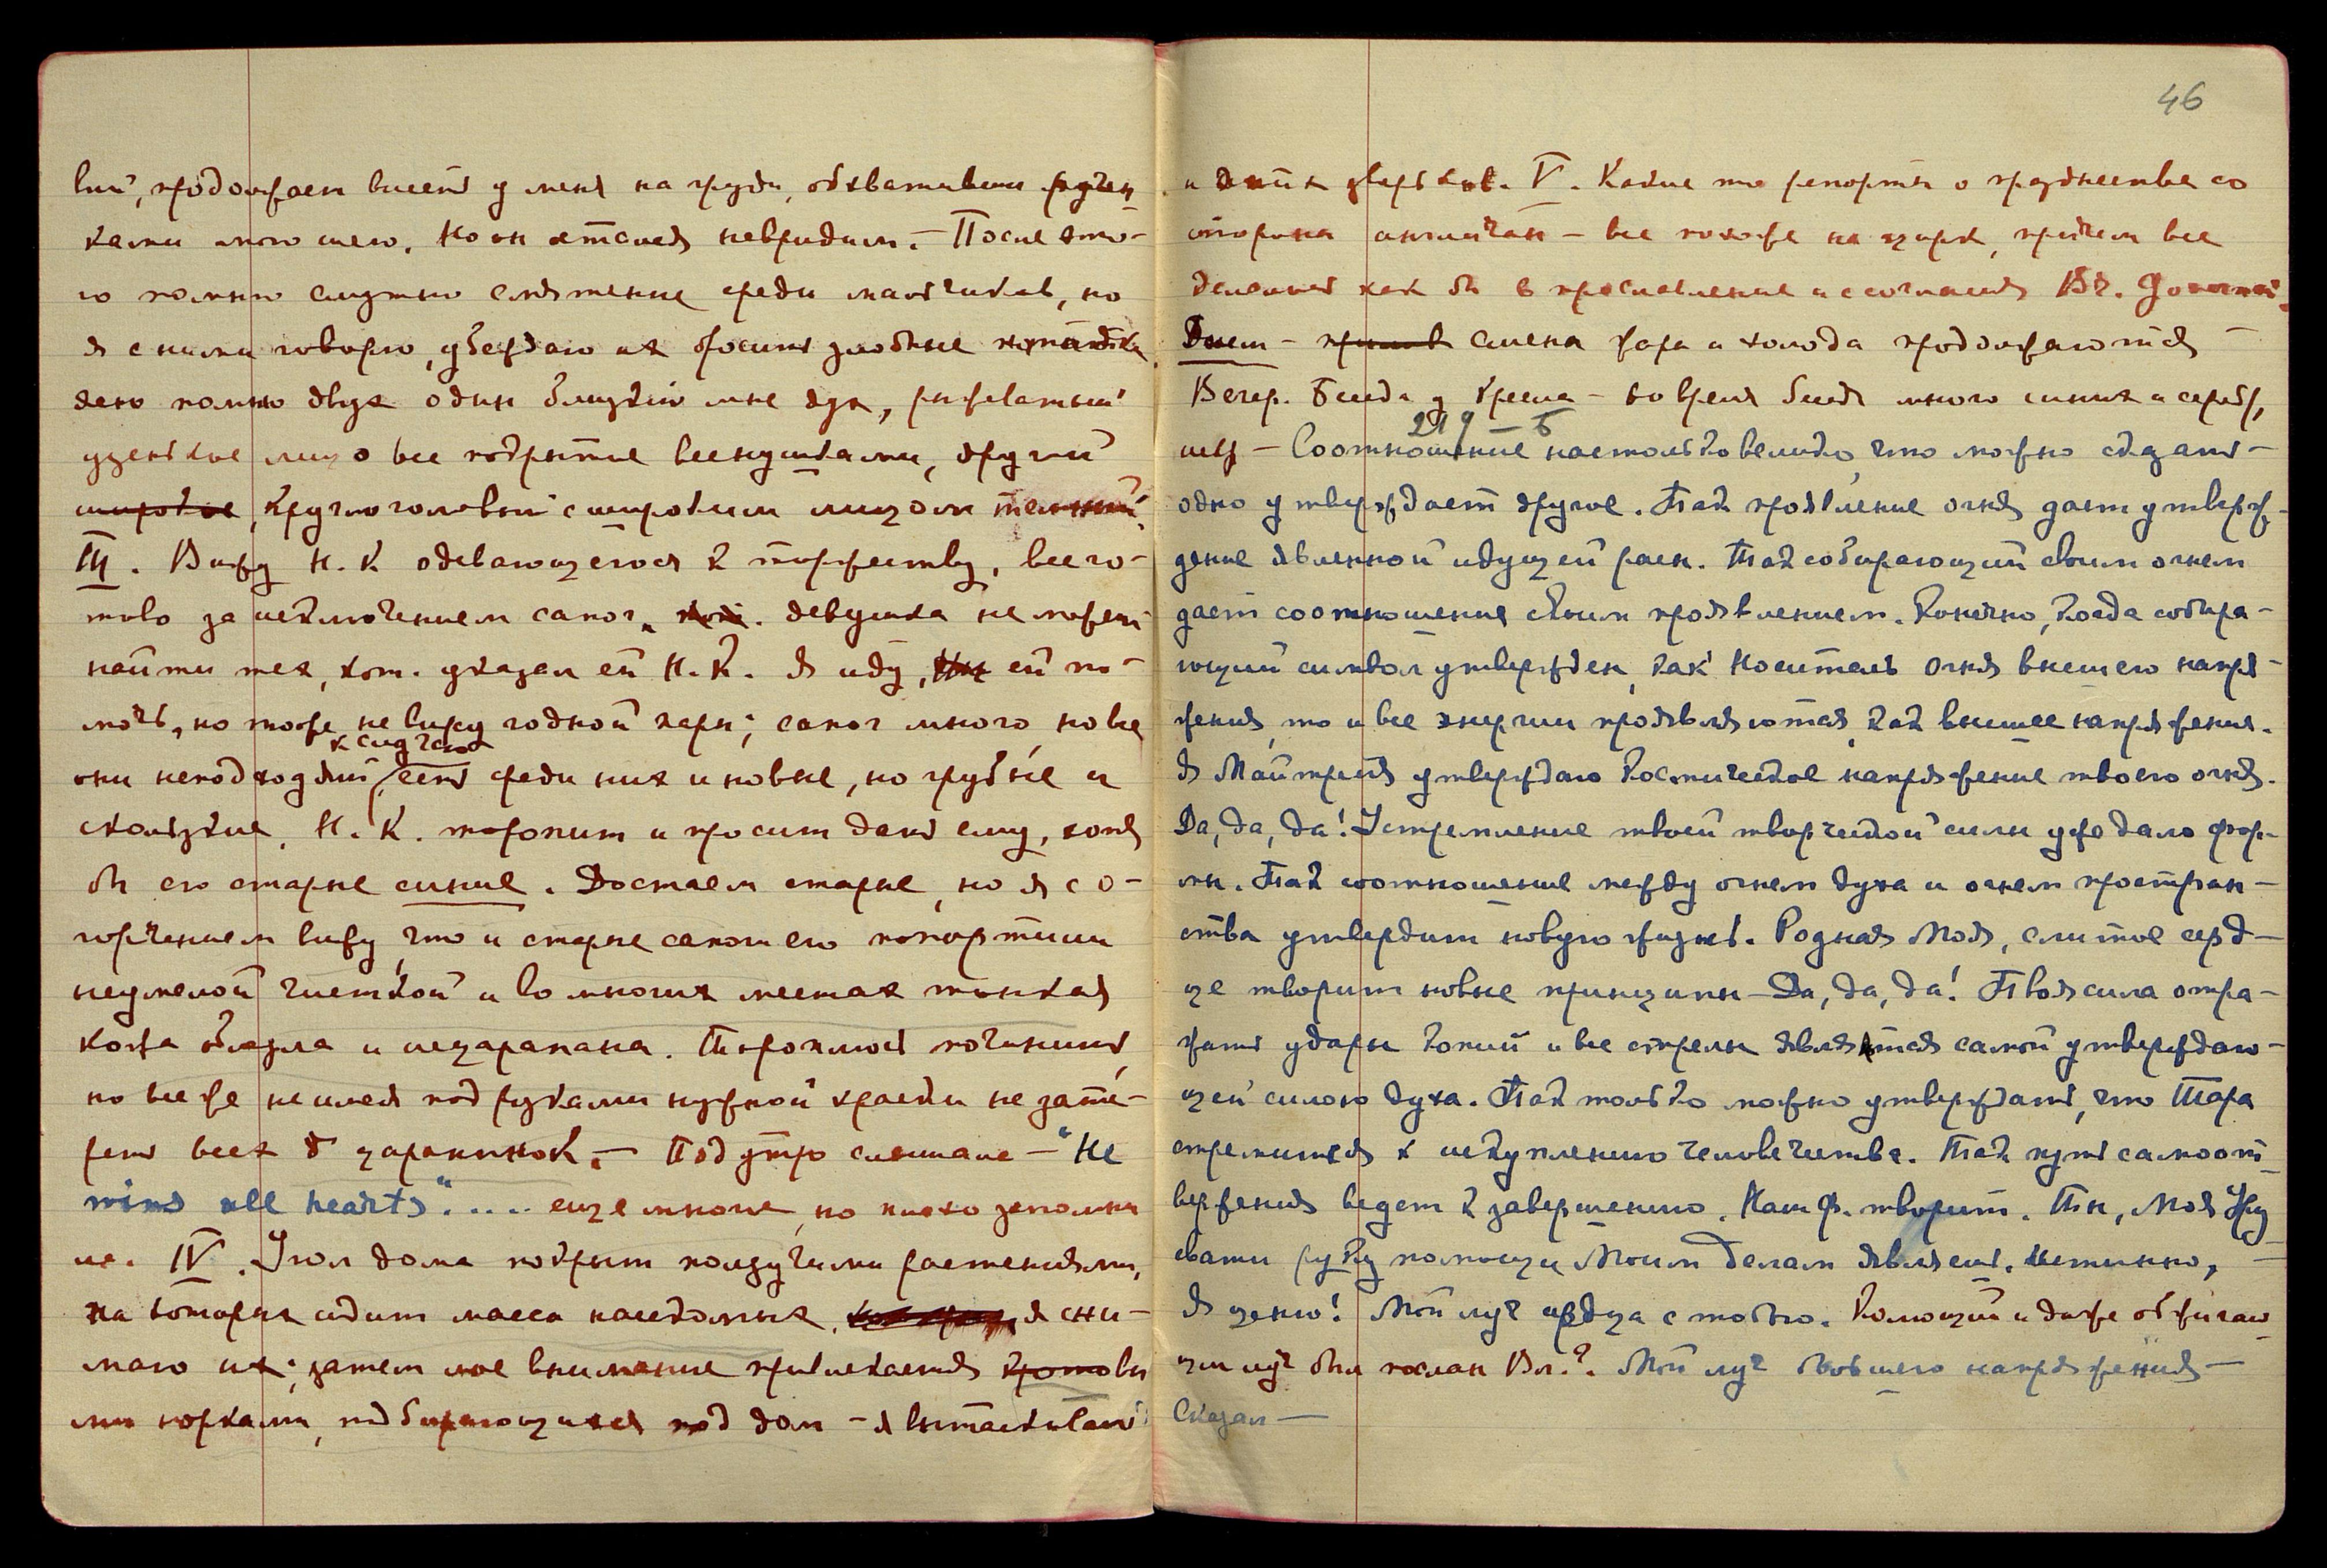 вий, продолжает висеть у меня на груди, обхватившим ручен
ками мою шею. Но он остался невридим. — После это-
го помню смутно смятение среди мальчиков, но
я с ними говорю, убеждаю их бросить злобные
ясно помню двух один близкий мне дух, рыжеватый
узенькое лицо все покрытое веснушками, другой
широкое, круглоголовый с широким лицом темный.
III. Вижу Н.К. одевающегося к торжеству, все го-
тово за исключением сапог. девушка не может
найти тех, кот. указал ей Н.К. Я иду, ей по-
мочь, но тоже не вижу годной пары; сапог много, но все
они неподходящи, есть среди них и новые, но грубые и
скользкие. Н.К. торопит и просит дать ему, хотя
бы его старые синие. Достаем старые, но я с о-
горчением вижу, что и старые сапоги его попортили
неумелой чисткой и во многих местах тонкая
кожа облезла и исцарапана. Тороплюсь починить,
но все же не имея под руками нужной краски не зате-
реть всех царапинок. — Под утро слышала — "He
wins all hearts"..... еще многое, но плохо запомни
ла. IV. Угол дома покрыт ползучими растениями,
на которых сидит масса насекомых, я сни-
маю их; затем мое внимание привлекается кротовы
ми норками, подбирающимися под дом — я вытаскиваю
46
и этих зверьков. V. Какие то репорты о празднестве со
стороны англичан — все похоже на цирк, причем все
делается как бы в прославление и с согласия Вл.
Днем — смена жара и холода продолжаются
Вечер. Беседа у Кресла — во время беседы много синих и серебр,
219 — Б
исц — Соотношение настолько велико, что можно сказать —
одно утверждает другое. Так проявление огня дает утверж-
дение явленной идущей расы. Так собирающий своим огнем
дает соотношение своим проявлением. Конечно, когда собира-
ющий символ утвержден, как Носитель Огня высшего напря-
жения, то и все энергии проявляются, как высшее напряжения.
Я Майтрейя утверждаю Космическое напряжение твоего огня.
Да, да, да! Устремление твоей творческой силы уже дало фор-
мы. Так соотношение между огнем духа и огнем простран-
ства утвердит новую жизнь. Родная Моя, слитое серд-
це творит новые принципы — Да, да, да! Твоя сила отра-
жать удары копий и все стрелы является самой утверждаю-
щей силою духа. Так только можно утверждать, что Тара
стремится к искуплению человечества. Так путь самоот-
вержения ведет к завершению. Наш Ф. творит. Ты, Моя Ур
свати руку помощи Моим делам являешь. Истинно,
Я ценю! Мой луч сердца с тобою. Колющий и даже обжигаю
щий луч был послан Вл.? Мой луч высшего напряжения —
Сказал —